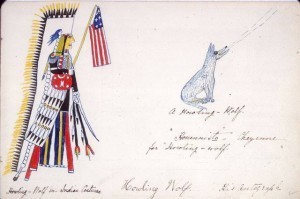 A Howling - Wolf.
Cheyenne
for "Howling - wolf.
Howling - Wolf in Indian Costume
Howling Wolf.
His Autograph